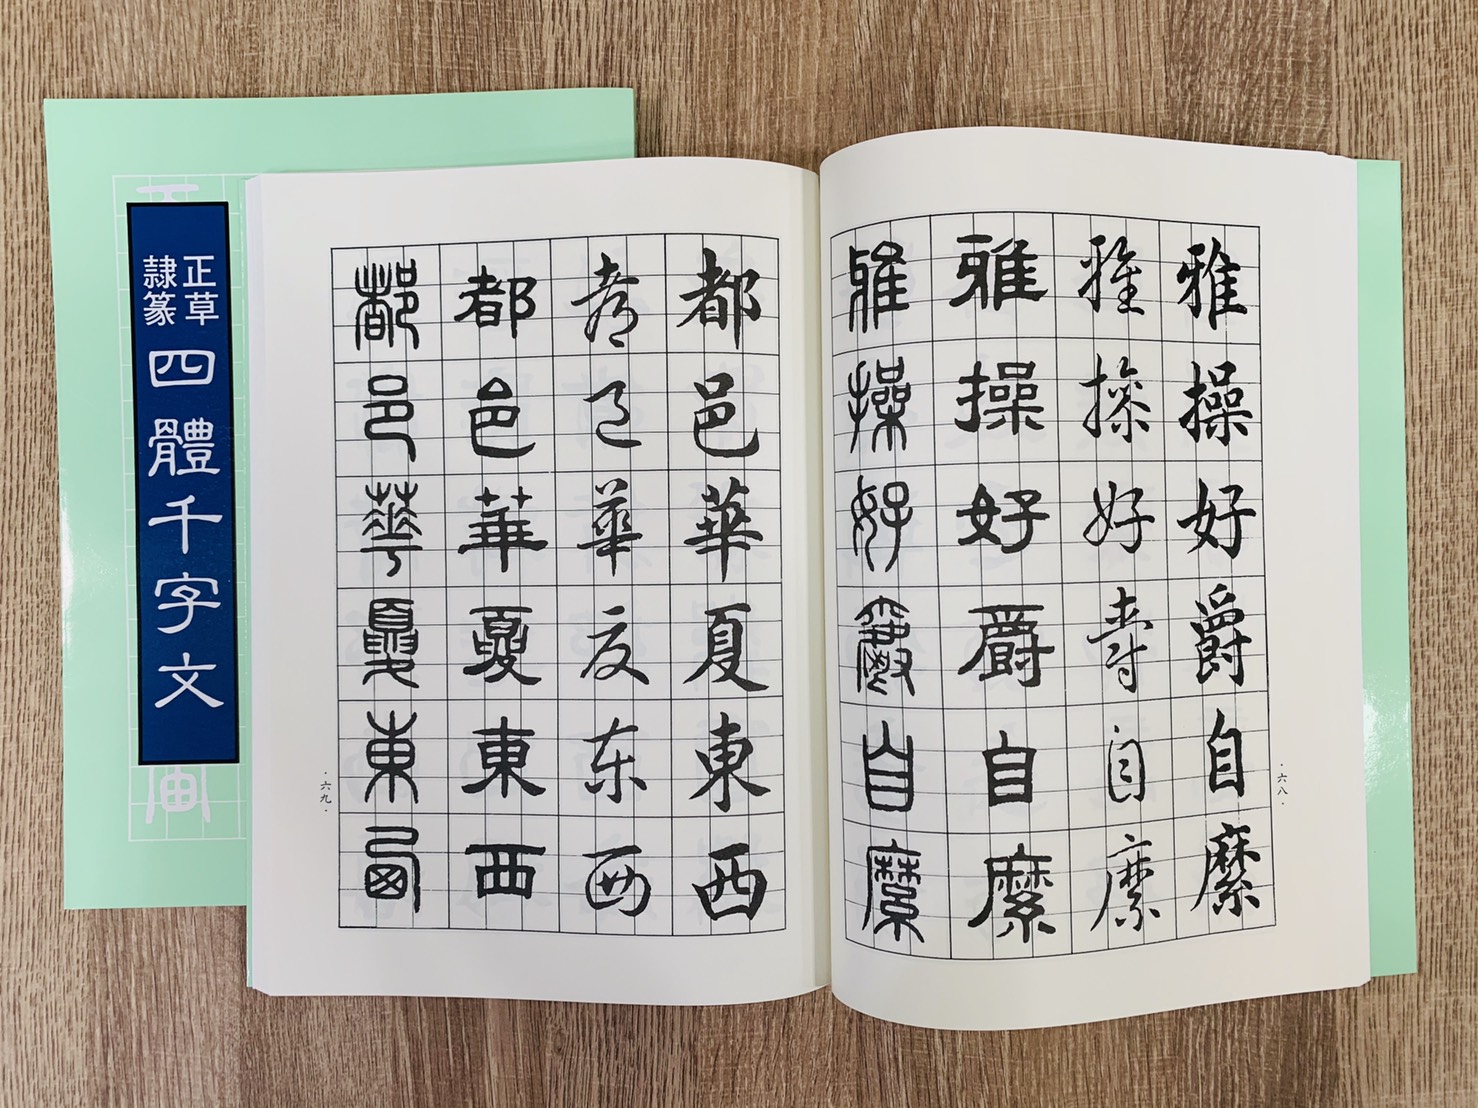 正草
隸篆
四體千字文
雅操好爵自縻
雅操好爵自縻
雅操好爵自縻
雅操好爵自縻
·六八·
都邑華夏東西
都邑華夏東西
都邑華夏東西
都邑華夏東西
·六九·